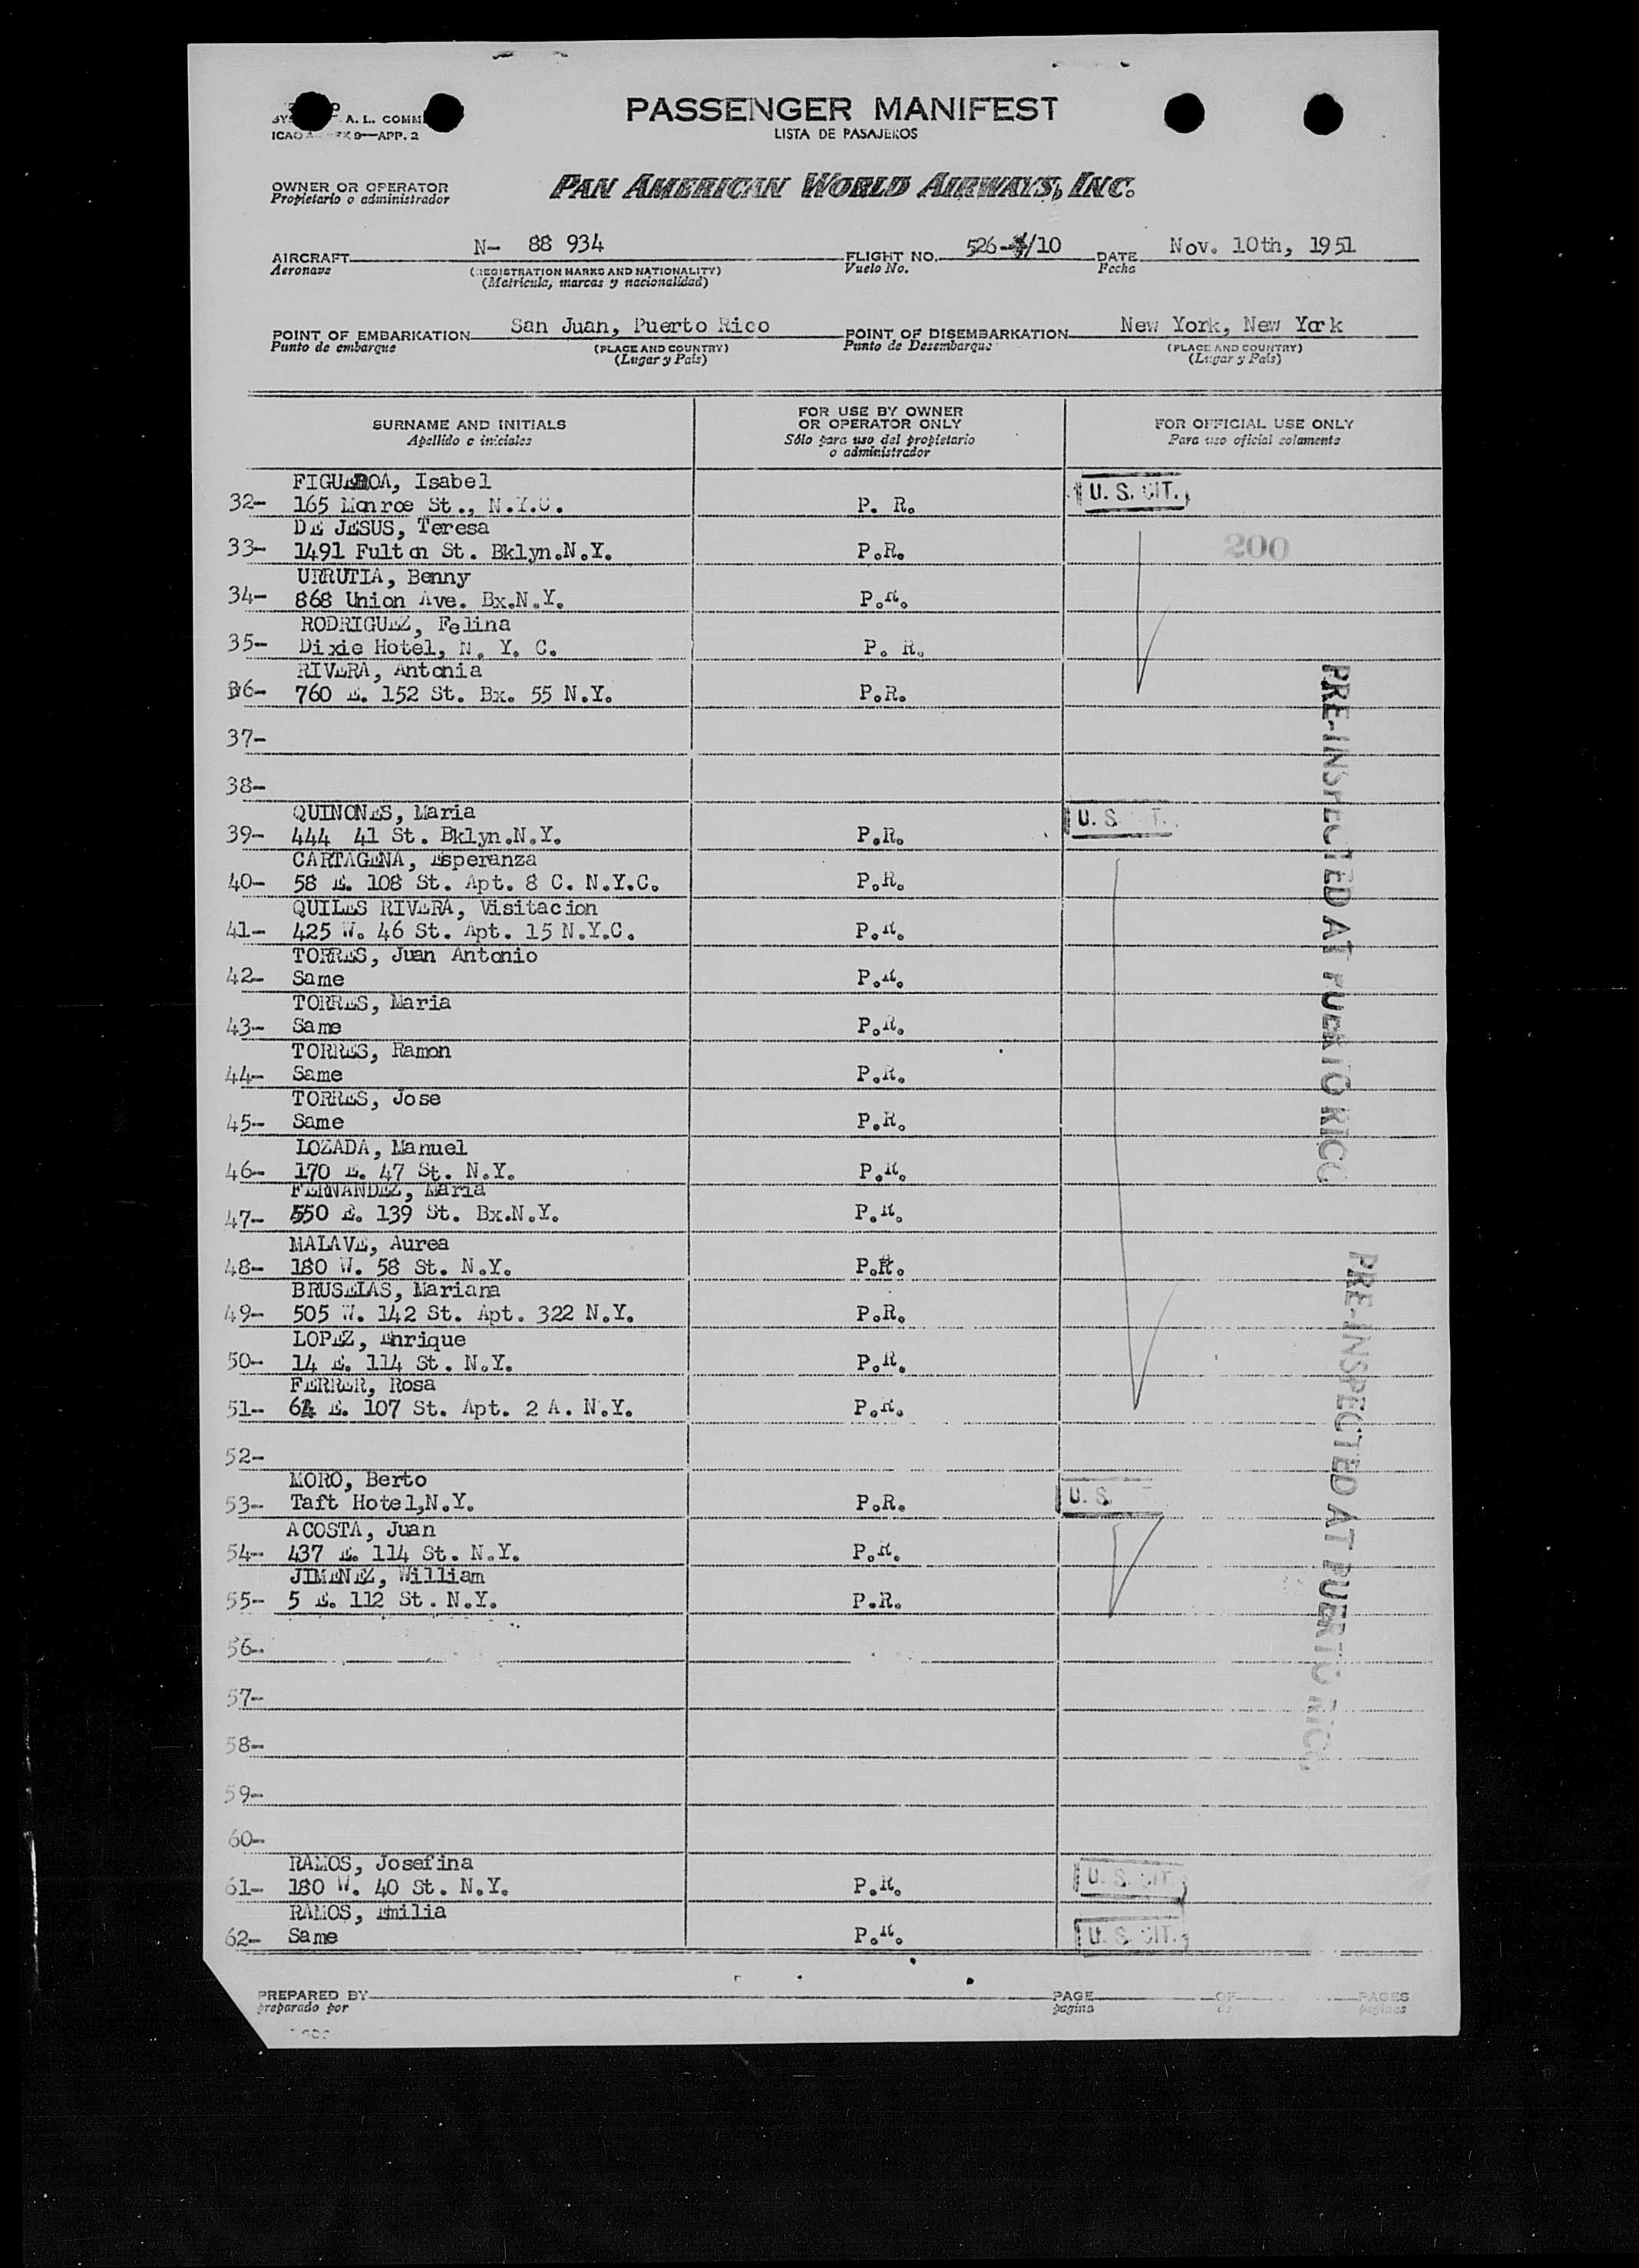 A. L. COMM
ICAO 9—APP. 2
PASSENGER MANIFEST
LISTA DE PASAJEROS
OWNER OR OPERATOR
Propietario o administrador
PAN AMERICAN WORLD AIRWAYS, INC.
AIRCRAFT N- 88 934 FLIGHT NO. 526-/10 DATE Nov. 10th, 1951
Aeronave (REGISTRATION MARKS AND NATIONALITY) Vuelo No. Fecha
(Matrícula, marcas y nacionalidad)
POINT OF EMBARKATION San Juan, Puerto Rico POINT OF DISEMBARKATION New York, New York
Punto de embarque (PLACE AND COUNTRY) Punto de Desembarque (PLACE AND COUNTRY)
(Lugar y País) (Lugar y País)
SURNAME AND INITIALS
Apellido e iniciales
FOR USE BY OWNER
OR OPERATOR ONLY
Sólo para uso del propietario
o administrador
FOR OFFICIAL USE ONLY
Para uso oficial solamente
FIGUEROA, Isabel
32- 165 Monroe St., N.Y.C. P. R. U. S. CIT.
DE JESUS, Teresa
33- 1491 Fulton St. Bklyn.N.Y. P.R. 200
URRUTIA, Benny
34- 868 Union Ave. Bx.N.Y. P.R.
RODRIGUEZ, Felina
35- Dixie Hotel, N. Y. C. P. R.
RIVERA, Antonia
36- 760 E. 152 St. Bx. 55 N.Y. P.R.
37-
38-
QUINONES, Maria
39- 444 41 St. Bklyn.N.Y. P.R. U. S.
CARTAGENA, Esperanza
40- 58 E. 108 St. Apt. 8 C. N.Y.C. P.R.
QUILES RIVERA, Visitacion
41- 425 W. 46 St. Apt. 15 N.Y.C. P.R.
TORRES, Juan Antonio
42- Same P.R.
TORRES, Maria
43- Same P.R.
TORRES, Ramon
44- Same P.R.
TORRES, Jose
45- Same P.R.
LOZADA, Manuel
46- 170 E. 47 St. N.Y. P.R.
FERNANDEZ, Maria
47- 550 E. 139 St. Bx.N.Y. P.R.
MALAVE, Aurea
48- 180 W. 58 St. N.Y. P.R.
BRUSELAS, Mariana
49- 505 W. 142 St. Apt. 322 N.Y. P.R.
LOPEZ, Enrique
50- 14 E. 114 St. N.Y. P.R.
FERRER, Rosa
51- 64 E. 107 St. Apt. 2 A. N.Y. P.R.
52-
MORO, Berto
53- Taft Hotel,N.Y. P.R. U. S.
ACOSTA, Juan
54- 437 E. 114 St. N.Y. P.R.
JIMENEZ, William
55- 5 E. 112 St. N.Y. P.R.
56-
57-
58-
59-
60-
RAMOS, Josefina
61- 180 W. 40 St. N.Y. P.R. U. S. CIT.
RAMOS, Emilia
62- Same P.R. U. S. CIT.
PRE-INSPECTED AT PUERTO RICO
PRE-INSPECTED AT PUERTO RICO
PREPARED BY PAGE OF PAGES
preparado por pagina de paginas